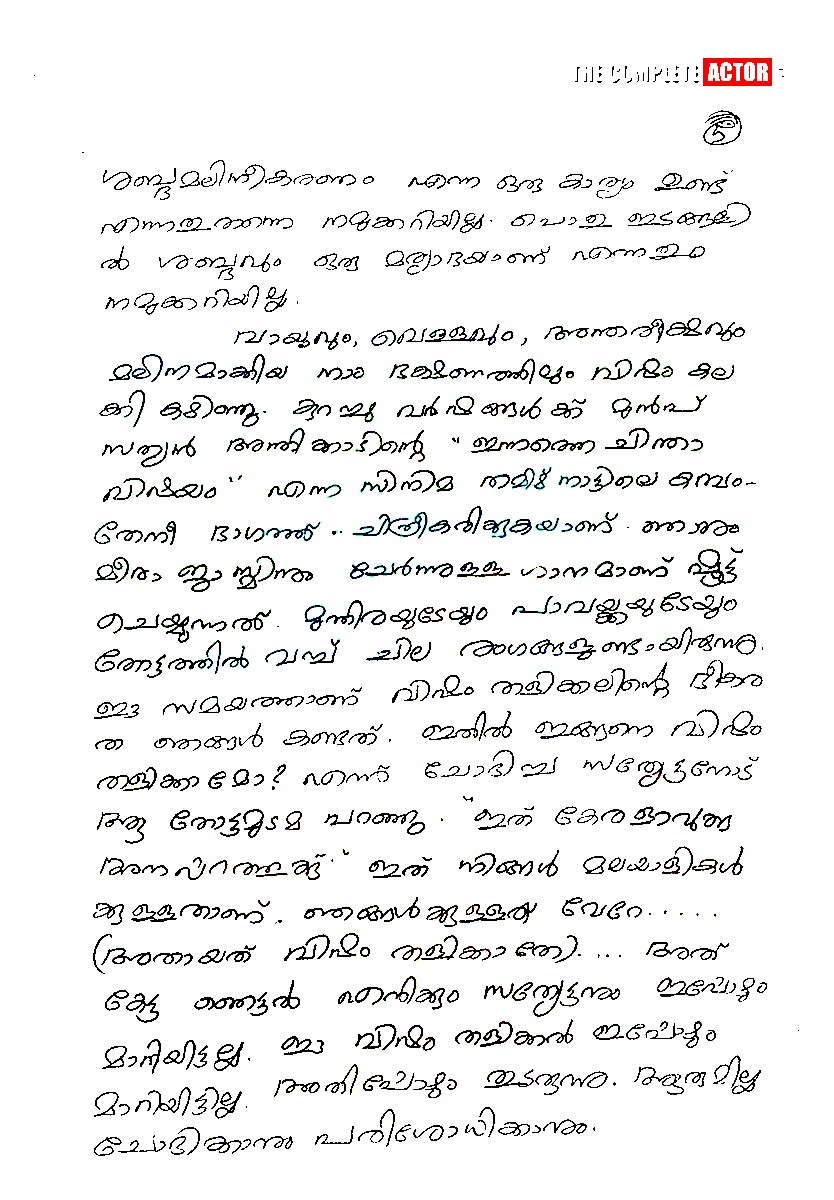 THE COMPLETE ACTOR
5
ശബ്ദമലിനീകരണം എന്ന ഒരു കാര്യം ഉണ്ട്
എന്നതുതന്നെ നമുക്കറിയില്ല. പൊതു ഇടങ്ങളി
ൽ ശബ്ദവും ഒരു മര്യാദയാണ് എന്നതും
നമുക്കറിയില്ല.
വായുവും, വെള്ളവും, അന്തരീക്ഷവും
മലിനമാക്കിയ നാം ഭക്ഷണത്തിലും വിഷം കല
ക്കി കഴിഞ്ഞു. കുറച്ചു വർഷങ്ങൾക്ക് മുൻപ്
സത്യൻ അന്തിക്കാടിന്റെ "ഇന്നത്തെ ചിന്താ
വിഷയം" എന്ന സിനിമ തമിഴ്നാട്ടിലെ കമ്പം-
തേനീ ഭാഗത്ത് .. ചിത്രീകരിക്കുകയാണ്. ഞാനും
മീരാ ജാസ്മിനും ചേർന്നുള്ള ഗാനമാണ് ഷൂട്ട്
ചെയ്യുന്നത്. മുന്തിരയുടേയും പാവയ്ക്കയുടേയും
തോട്ടത്തിൽ വച്ച് ചില രംഗങ്ങളുണ്ടായിരുന്നു.
ഈ സമയത്താണ് വിഷം തളിക്കലിന്റെ ഭീകര
ത ഞങ്ങൾ കണ്ടത്. ഇതിൽ ഇങ്ങനെ വിഷം
തളിക്കാമോ? എന്ന് ചോദിച്ച സത്യേട്ടനോട്
ആ തോട്ടമുടമ പറഞ്ഞു. "ഇത് കേരളാവുക്കു
അനുപ്പറത്തുക്ക്" ഇത് നിങ്ങൾ മലയാളികൾ
ക്കുള്ളതാണ്. ഞങ്ങൾക്കുള്ളത് വേറേ.....
(അതായത് വിഷം തളിക്കാതേ).... അത്
കേട്ട ഞെട്ടൽ എനിക്കും സത്യേട്ടനും ഇപ്പോഴും
മാറിയിട്ടില്ല. ഈ വിഷം തളിക്കൽ ഇപ്പോഴും
മാറിയിട്ടില്ല. അതിപ്പോഴും തുടരുന്നു. ആരുമില്ല
ചോദിക്കാനും പരിശോധിക്കാനും.